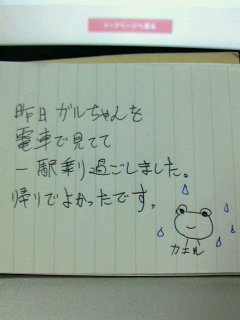 トップページへ戻る
昨日ガルちゃんを
電車で見てて
一駅乗り過ごしました。
帰りでよかったです。
カエル